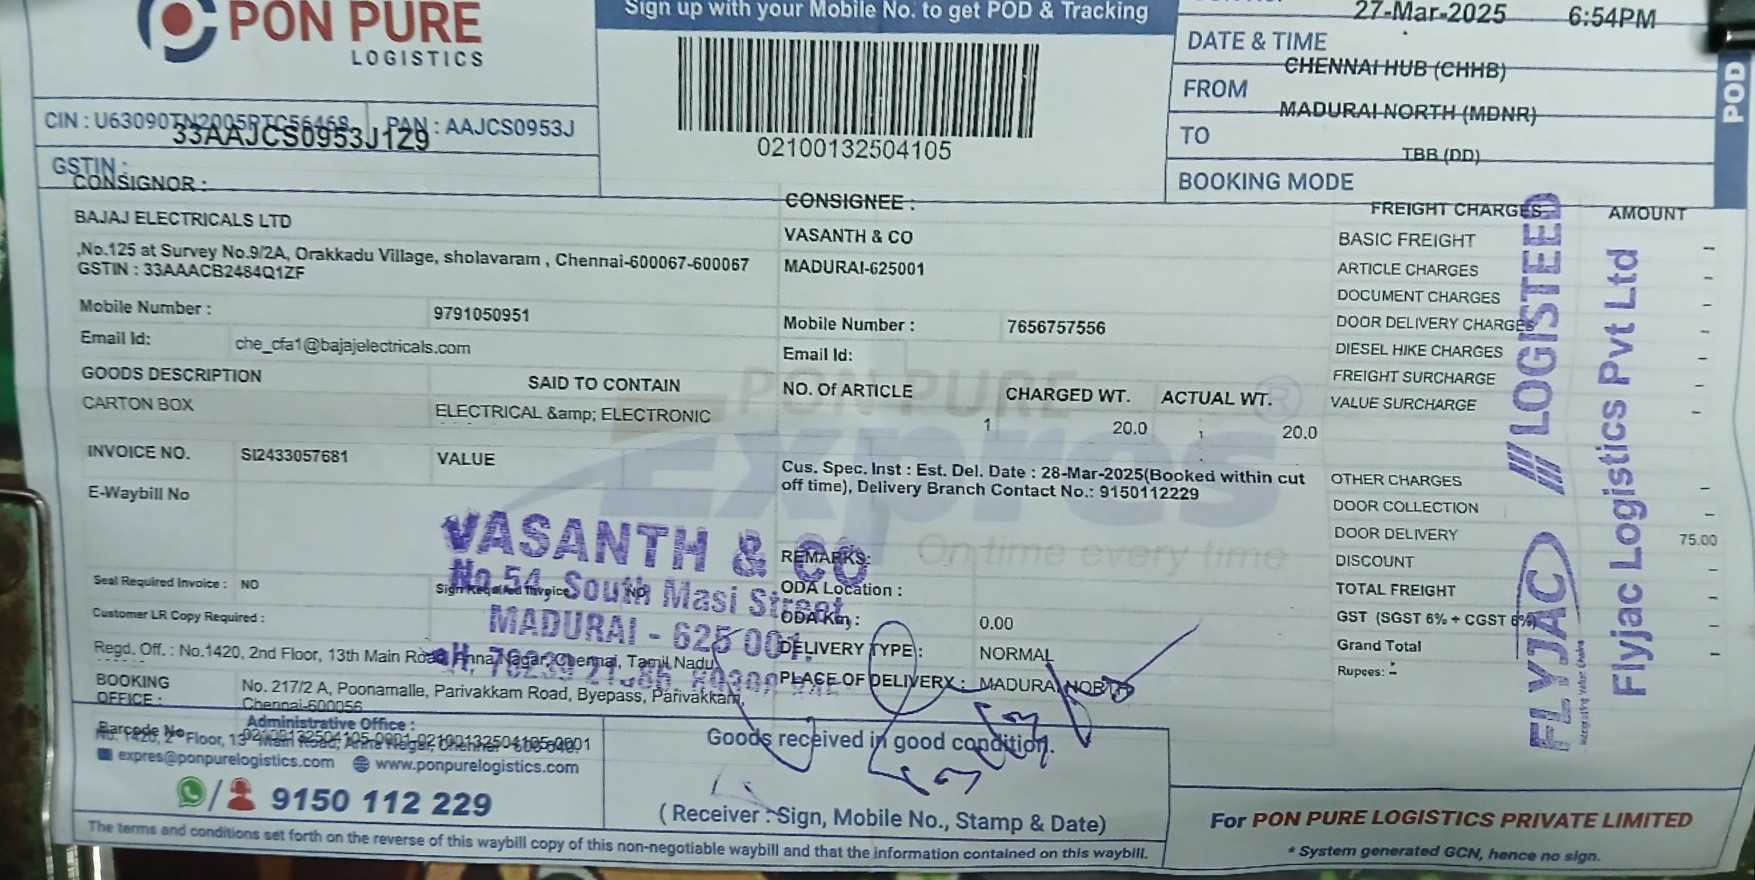 PON PURE
LOGISTICS
Sign up with your Mobile No. to get POD & Tracking
02100132504105
27-Mar-2025 6:54PM
DATE & TIME
CHENNAI HUB (CHHB)
FROM
MADURAI NORTH (MDNR)
TO
TBB (DD)
BOOKING MODE
POD
CIN : U63090TN2005PTC56468 PAN : AAJCS0953J
33AAJCS0953J1Z9
GSTIN :
CONSIGNOR :
BAJAJ ELECTRICALS LTD
,No.125 at Survey No.9/2A, Orakkadu Village, sholavaram , Chennai-600067-600067
GSTIN : 33AAACB2484Q1ZF
Mobile Number : 9791050951
Email Id: che_cfa1@bajajelectricals.com
CONSIGNEE :
VASANTH & CO
MADURAI-625001
Mobile Number : 7656757556
Email Id:
GOODS DESCRIPTION SAID TO CONTAIN NO. Of ARTICLE CHARGED WT. ACTUAL WT.
CARTON BOX ELECTRICAL &amp; ELECTRONIC 1 20.0 20.0
INVOICE NO. SI2433057681 VALUE
E-Waybill No
Cus. Spec. Inst : Est. Del. Date : 28-Mar-2025(Booked within cut
off time), Delivery Branch Contact No.: 9150112229
PON PURE
Expres
On time every time
FREIGHT CHARGES AMOUNT
BASIC FREIGHT -
ARTICLE CHARGES -
DOCUMENT CHARGES -
DOOR DELIVERY CHARGES -
DIESEL HIKE CHARGES -
FREIGHT SURCHARGE -
VALUE SURCHARGE -
OTHER CHARGES -
DOOR COLLECTION -
DOOR DELIVERY 75.00
DISCOUNT -
TOTAL FREIGHT -
GST (SGST 6% + CGST 6%) -
Grand Total -
Rupees: -
FLYJAC LOGISTEED
Integrating Value Chains
Flyjac Logistics Pvt Ltd
VASANTH & CO
No.54, South Masi Street
MADURAI - 625 001.
REMARKS:
ODA Location :
ODA Km : 0.00
DELIVERY TYPE : NORMAL
PLACE OF DELIVERY : MADURAI NORTH
Seal Required Invoice : NO Sign Required Invoice NO
Customer LR Copy Required :
Regd. Off. : No.1420, 2nd Floor, 13th Main Road, Anna Nagar, Chennai, Tamil Nadu
BOOKING
OFFICE :
No. 217/2 A, Poonamalle, Parivakkam Road, Byepass, Parivakkam,
Chennai-600056
Administrative Office :
Barcode No 02100132504105-0001-02100132504105-0001
No. 1420, 2nd Floor, 13th Main Road, Anna Nagar, Chennai - 600 040.
expres@ponpurelogistics.com www.ponpurelogistics.com
/ 9150 112 229
Goods received in good condition.
( Receiver : Sign, Mobile No., Stamp & Date)
For PON PURE LOGISTICS PRIVATE LIMITED
* System generated GCN, hence no sign.
The terms and conditions set forth on the reverse of this waybill copy of this non-negotiable waybill and that the information contained on this waybill.